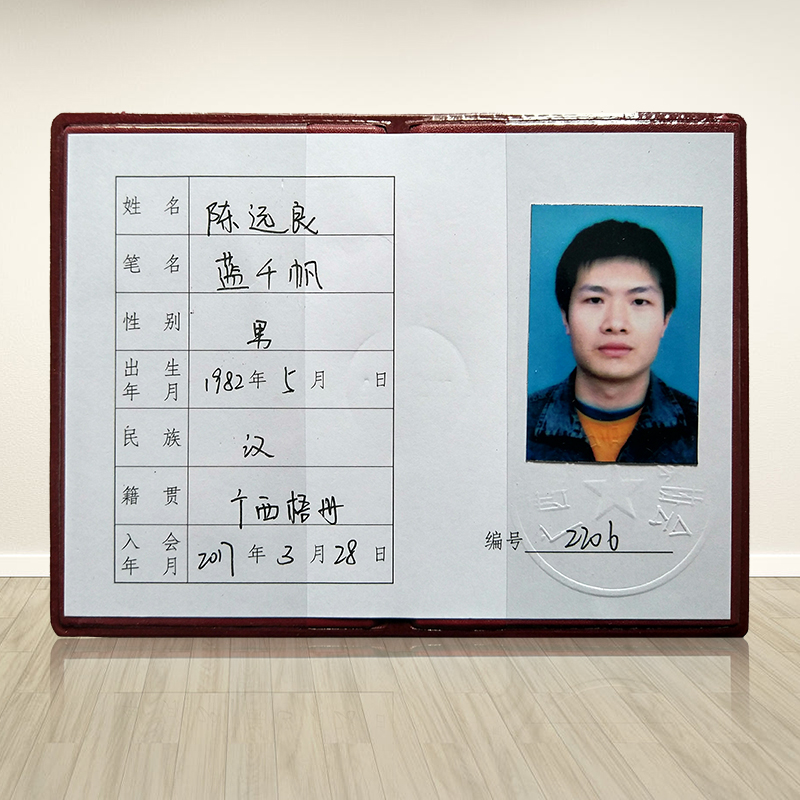 姓 名 陈远良
笔 名 蓝千帆
性 别 男
出 生
年 月 1982年 5月 日
民 族 汉
籍 贯 广西梧州
入 会
年 月 2017年 3月 28日
编号 2206